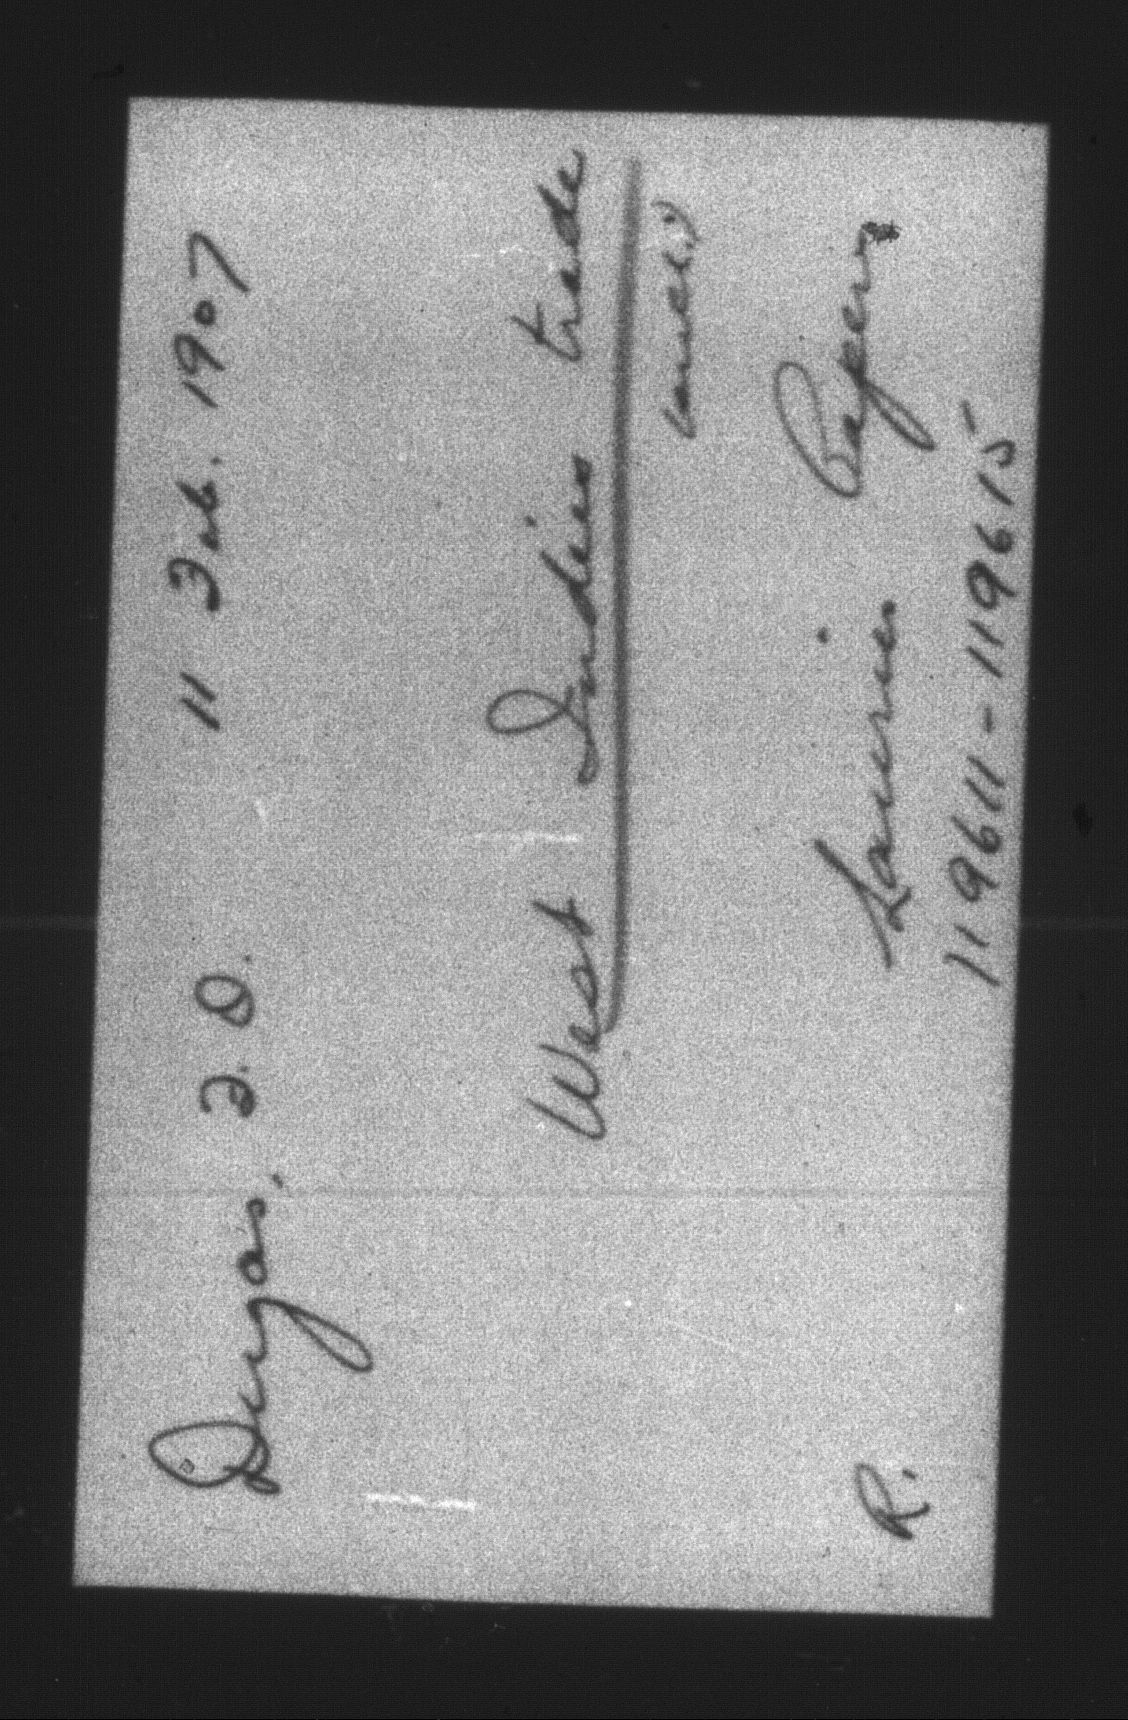 Duryas, F. D. 11 Feb. 1907
West Indies trade
R. Laurier Papers
119611-119615